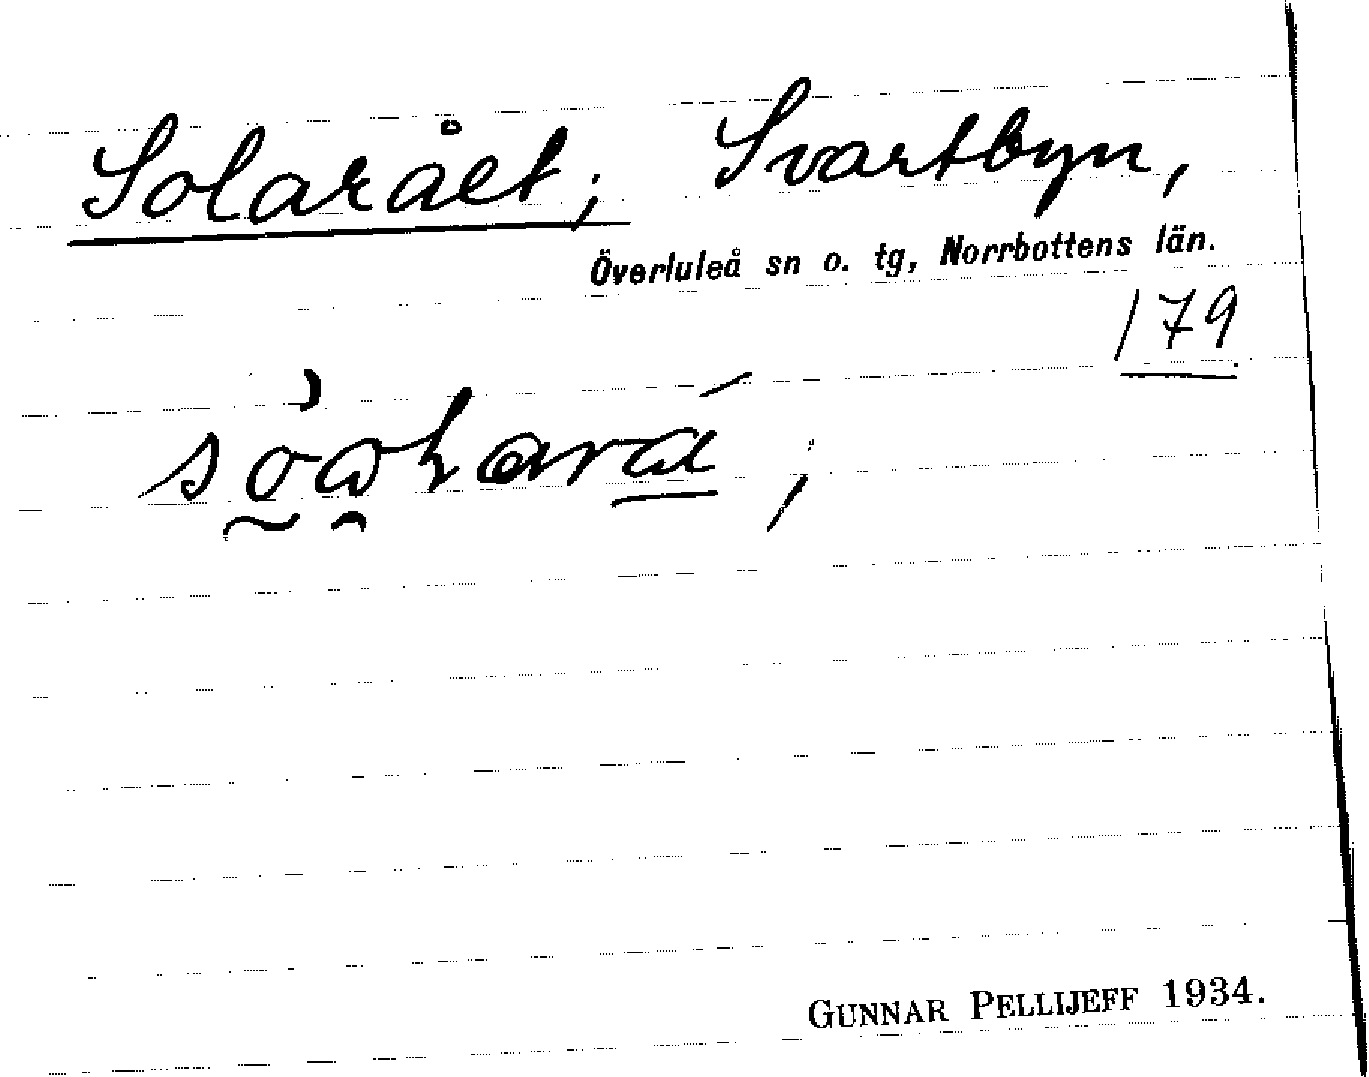 Solarået; Svartbyn,
Överluleå sn o. tg, Norrbottens län.
179
GUNNAR PELLIJEFF 1934.